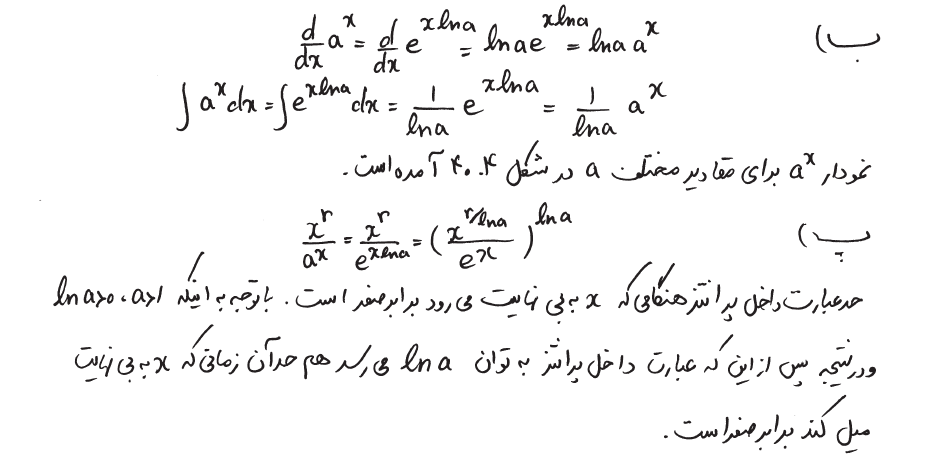 ب) d/dx a^x = d/dx e^{x ln a} = ln a e^{x ln a} = ln a a^x
∫ a^x dx = ∫ e^{x ln a} dx = 1/ln a e^{x ln a} = 1/ln a a^x
نمودار a^x برای مقادیر مختلف a در شکل ۴۰.۴ آمده است.
پ) x^r/a^x = x^r/e^{x ln a} = (x^{r/ln a}/e^x)^{ln a}
حد عبارت داخل پرانتز هنگامی که x به بی نهایت می رود برابر صفر است. با توجه به اینکه a>1، ln a>0
و در نتیجه پس از این که عبارت داخل پرانتز به توان ln a می رسد هم حد آن زمانی که x به بی نهایت
میل کند برابر صفر است.